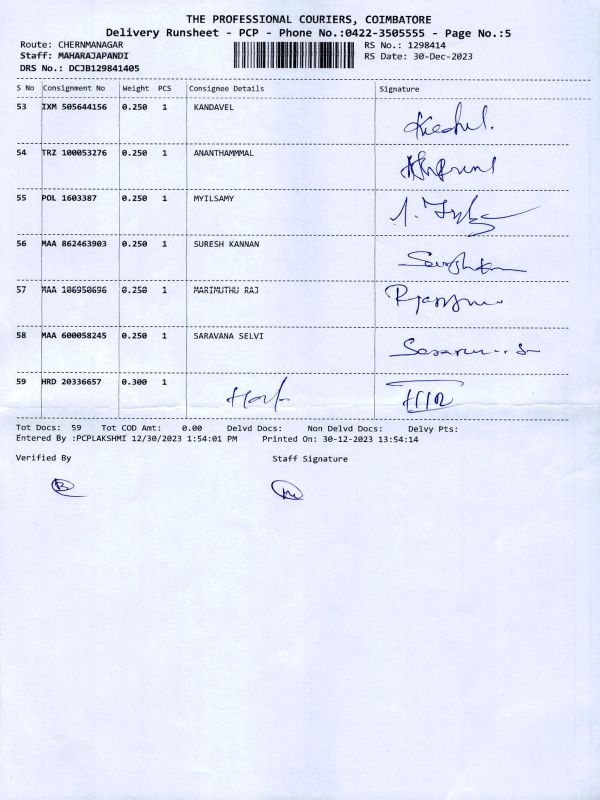 THE PROFESSIONAL COURIERS, COIMBATORE
Delivery Runsheet - PCP - Phone No.:0422-3505555 - Page No.:5
Route: CHERNMANAGAR RS No.: 1298414
Staff: MAHARAJAPANDI RS Date: 30-Dec-2023
DRS No.: DCJB129841405
S No Consignment No Weight PCS Consignee Details Signature
53 IXM 505644156 0.250 1 KANDAVEL
54 TRZ 100053276 0.250 1 ANANTHAMMMAL
55 POL 1603387 0.250 1 MYILSAMY
56 MAA 862463903 0.250 1 SURESH KANNAN
57 MAA 106950696 0.250 1 MARIMUTHU RAJ
58 MAA 600058245 0.250 1 SARAVANA SELVI
59 HRD 20336657 0.300 1
Tot Docs: 59 Tot COD Amt: 0.00 Delvd Docs: Non Delvd Docs: Delvy Pts:
Entered By :PCPLAKSHMI 12/30/2023 1:54:01 PM Printed On: 30-12-2023 13:54:14
Verified By Staff Signature